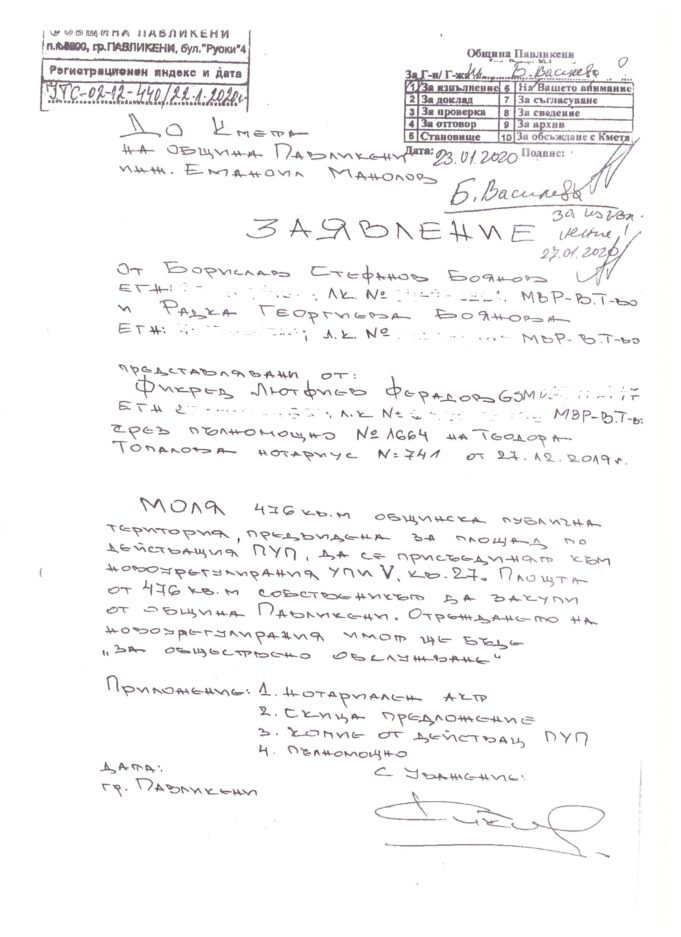 ОБЩИНА ПАВЛИКЕНИ
п.к.5200, гр.ПАВЛИКЕНИ, бул."Руски"4
Регистрационен индекс и дата
УТС-02-12-440/22.1.2020г
Община Павликени
За Г-н/ Г-жа Б. Василева
1 За изпълнение 6 На Вашето внимание
2 За доклад 7 За съгласуване
3 За проверка 8 За сведение
4 За отговор 9 За архив
5 Становище 10 За обсъждане с Кмета
Дата: 23.01.2020 Подпис:
До Кмета
на Община Павликени
инж. Еманоил Манолов
Б. Василева
за изпъл.
нение!
27.01.2020
ЗАЯВЛЕНИЕ
от Борислав Стефанов Боянов
ЕГН: ; Л.К. № МВР-В.Т-во
и Радка Георгиева Боянова
ЕГН: ; Л.К. № МВР-В.Т-во
представлявани от:
Фикред Лютфиев Ферадов GSM
ЕГН ; Л.К № МВР-В.Т-в.
чрез пълномощно №1664 на Теодора
Топалова нотариус №741 от 27.12.2019г.
Моля 476 кв.м общинска публична
територия, предвидена за площад по
действащия ПУП, да се присъединят към
новоурегулирания УПИ V, кв. 27. Площта
от 476 кв.м собственикът да закупи
от Община Павликени. Отреждането на
новоурегулирания имот ще бъде
„за обществено обслужване“
Приложение: 1. Нотариален акт
2. Скица предложение
3. Копие от действащ ПУП
4. Пълномощно
Дата:
гр. Павликени
С уважение: